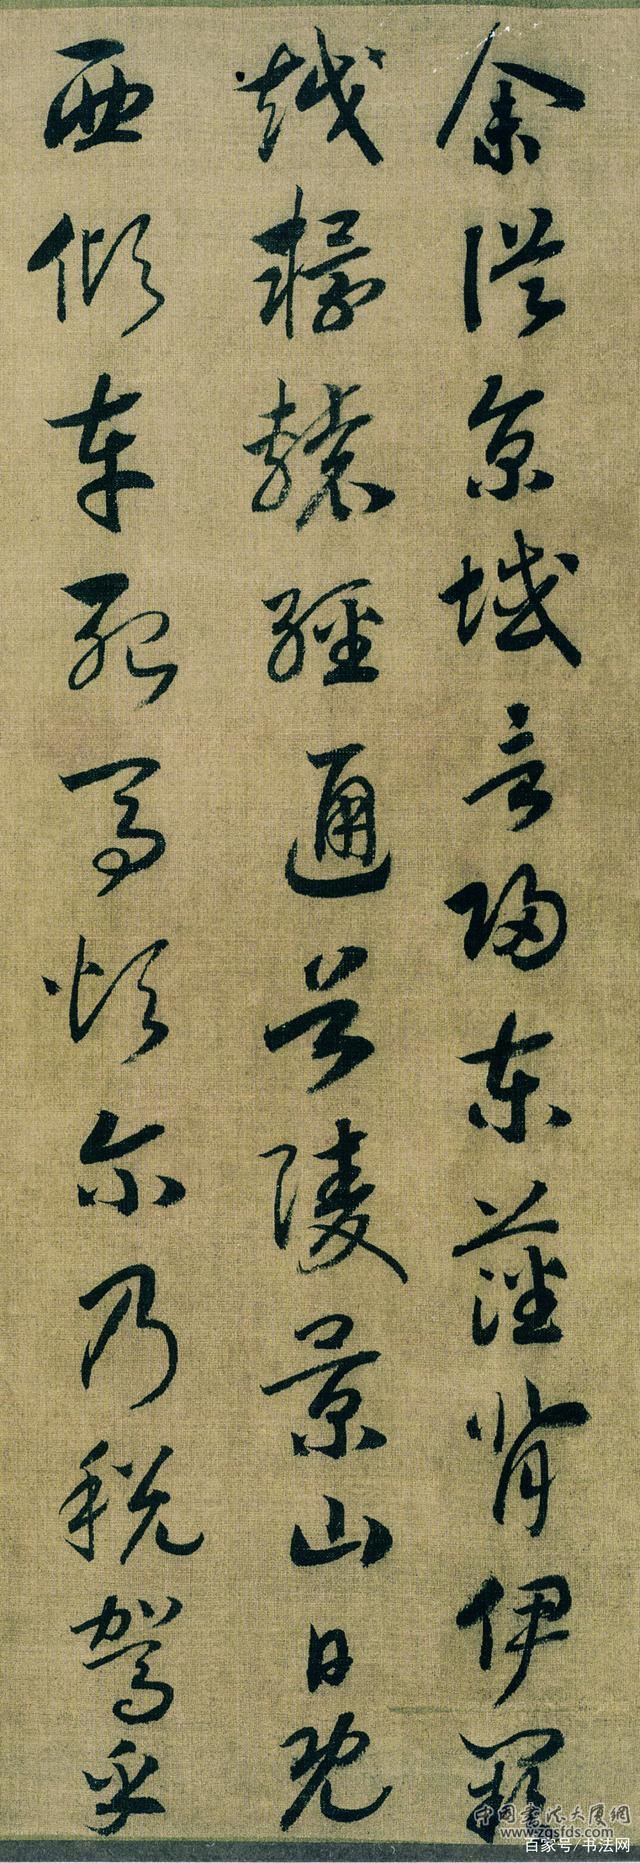 余從京域言歸東藩背伊闕
越轘轅經通谷陵景山日既
西傾車殆馬煩尔乃税駕乎
中国书法大厦網
www.zgsfds.com
百家号/书法网